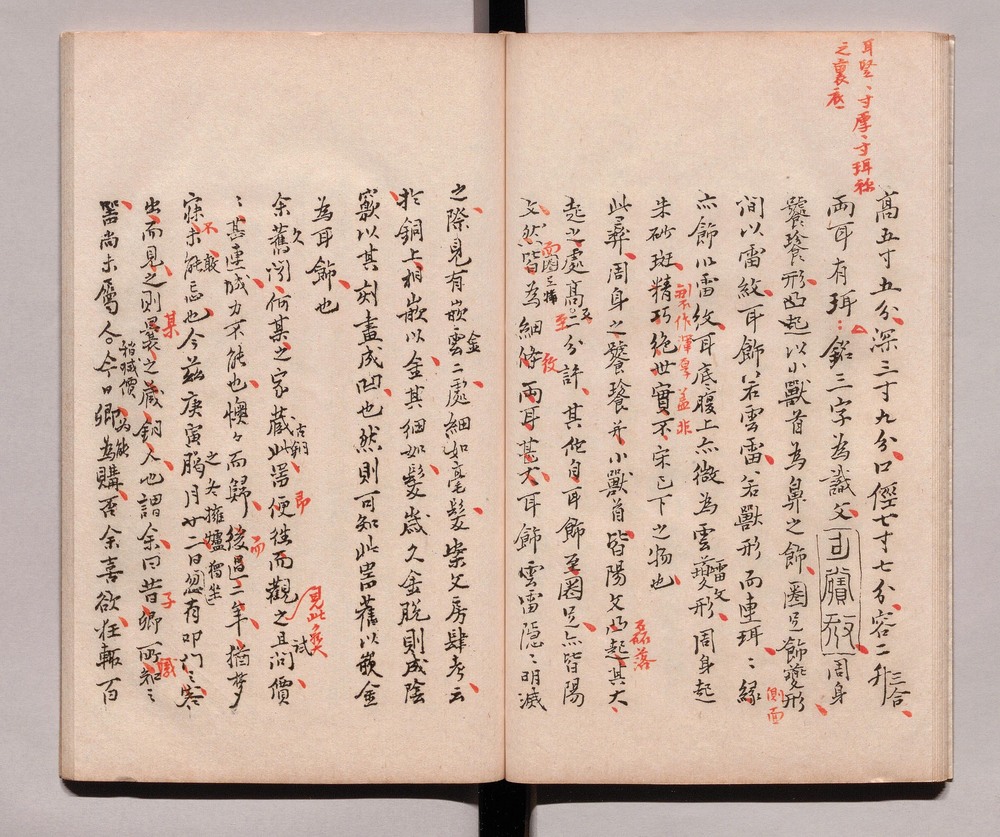 耳竪一寸厚一寸珥
之裏底
高五寸五分深三寸九分口徑七寸七分容二升三合
兩耳有珥銘三字為識文 周身
饕餮形凸起以小獸首為鼻之飾圈足飾夔形
側面
間以雷紋耳飾若雲雷若獸形而連珥〻緣
亦飾以雷紋耳底腹上亦微為雲雷文夔形周身起
朱砂斑精巧絕世實不宋已下之物也
制作渾厚蓋非
此彝周身之饕餮并小獸首皆陽文凸起其大
磊落
起之處高二分許其佗自耳飾至圈足亦皆陽
文然皆為細條兩耳甚大耳飾雲雷隱〻明滅
之際見有嵌金雲二處細如毫髮案文房肆考云
於銅上相嵌以金其細如髮歲久金脫則成陰
窾以其刻畫成凹也然則可知此器舊以嵌金
為耳飾也
余舊聞何某之家藏此古銅器便往而觀之且問價
久
見此彝
試
〻甚連城力不能也懊々而歸後過二年猶夢
而
寐未能忘也今茲庚寅臘月廿二日忽有叩門〻客
不敢
之冬擁爐獨坐
出而見之則曩之藏銅人也謂余曰昔卿所知之
某
子
器尚未屬人今日卿為購否余喜欲狂輒百
稍減價